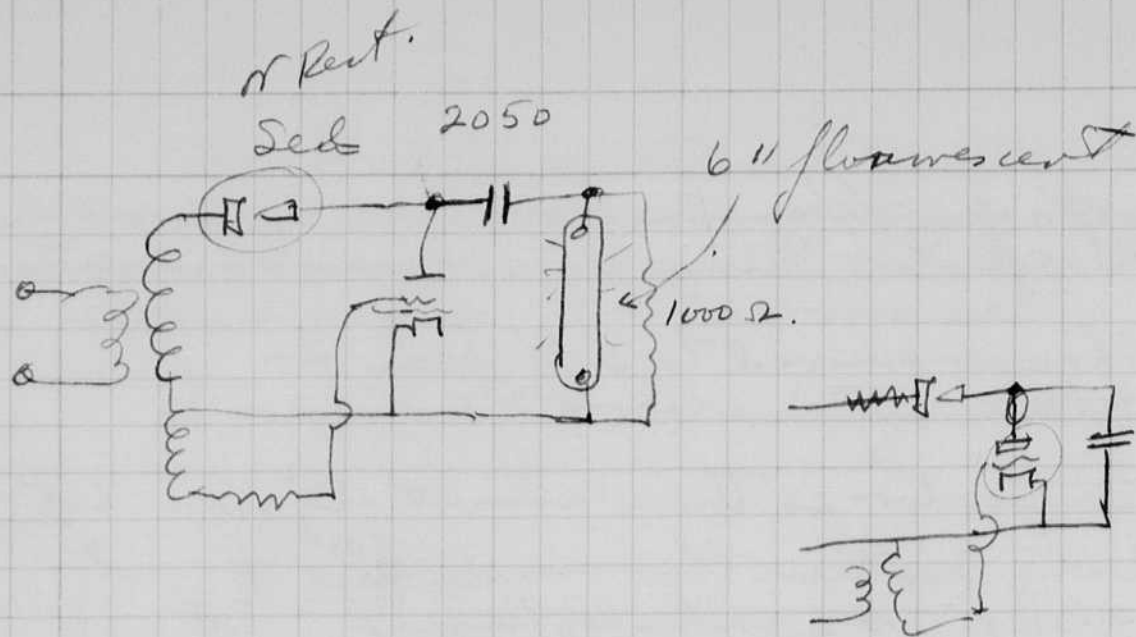 Rect.
2050
6" fluorescent
1000 Ω.